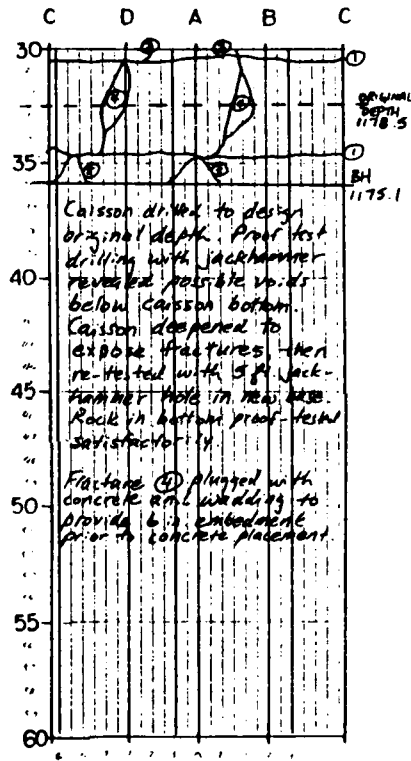 C D A B C
30
③ ③
①
④ ④
ORIGINAL
DEPTH
1178.5
①
35
BH
1175.1
Caisson drilled to design
original depth. Proof test
drilling with jackhammer
revealed possible voids
below caisson bottom.
40
Caisson deepened to
expose fractures, then
re-tested with 5 ft jack-
45
hammer hole in new base.
Rock in bottom proof-tested
satisfactorily
Fracture ④ plugged with
concrete and wadding to
50
provide 6 in embedment
prior to concrete placement
55
60